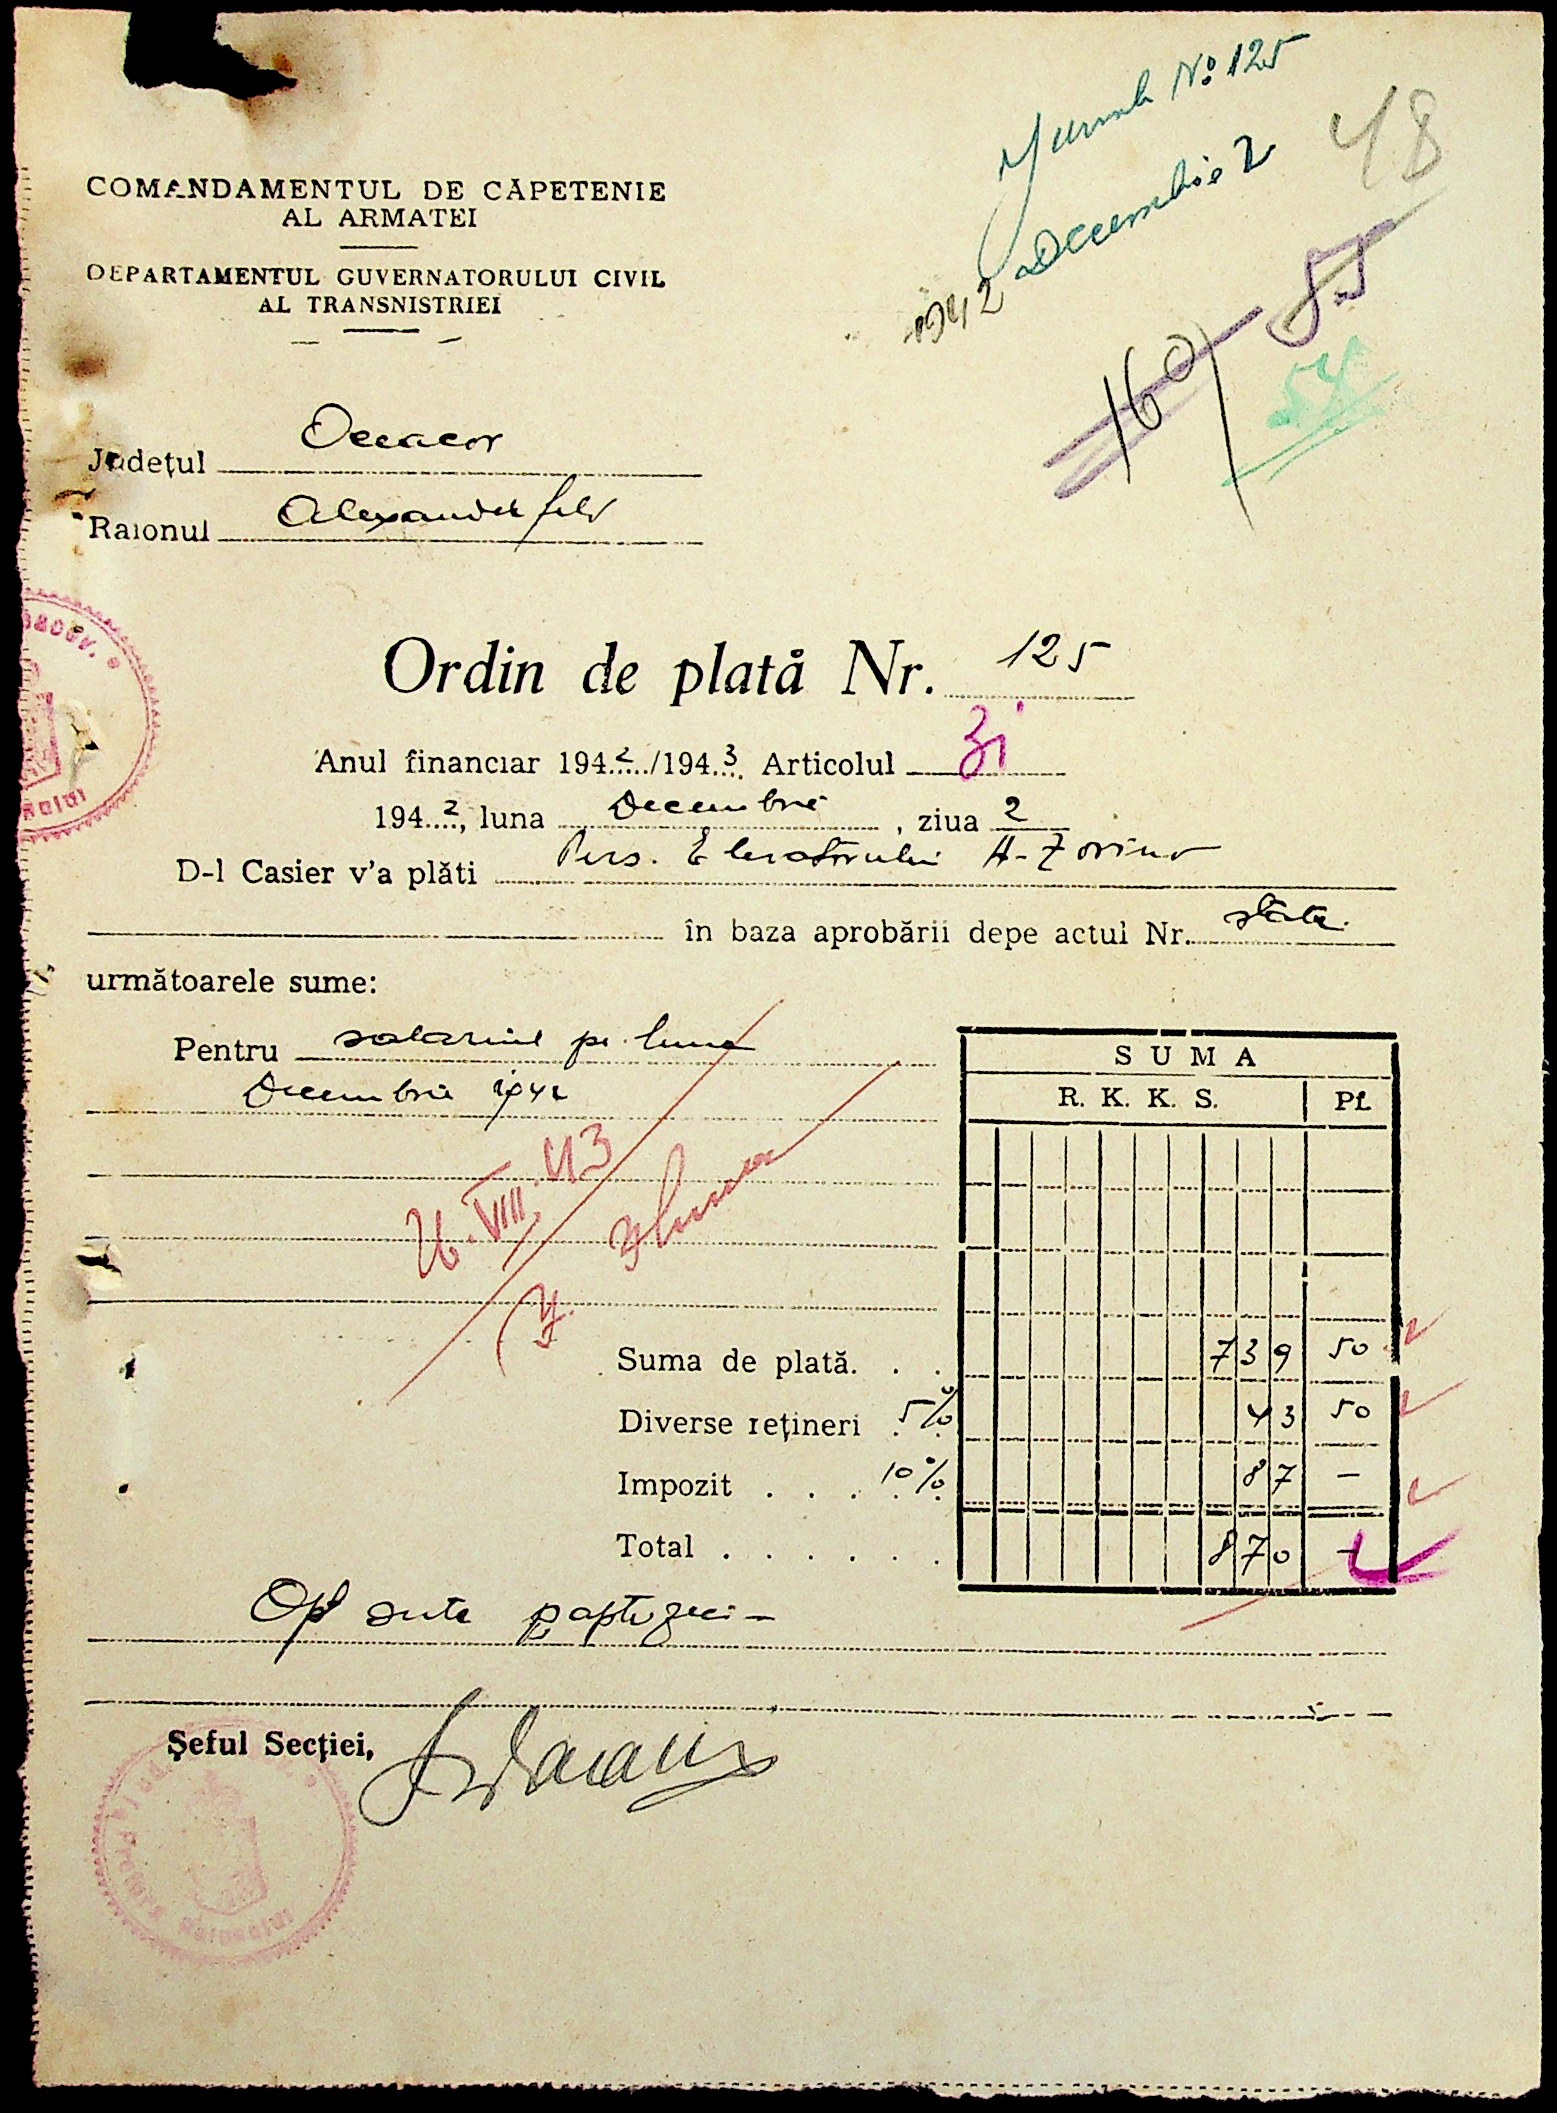 Jurnal No 125
1942 Decembrie 2
48
85
160
54
COMANDAMENTUL DE CĂPETENIE
AL ARMATEI
DEPARTAMENTUL GUVERNATORULUI CIVIL
AL TRANSNISTRIEI
Județul Oceacov
Raionul Alexanderfeld
Ordin de plată Nr. 125
Anul financiar 1942/1943 Articolul 31
1942, luna Decembrie, ziua 2
D-l Casier v'a plăti Pers. Elevatorului
în baza aprobării depe actul Nr. state
următoarele sume:
Pentru salariul pe luna
Decembrie 1942
SUMA
R. K. K. S. Pf.
26.VIII.43
Suma de plată. . . 739 50
Diverse rețineri 5% 43 50
Impozit . . . 10% 87 —
Total . . . . . . 870 —
Opt sute șaptezeci —
Șeful Secției,
Raionului